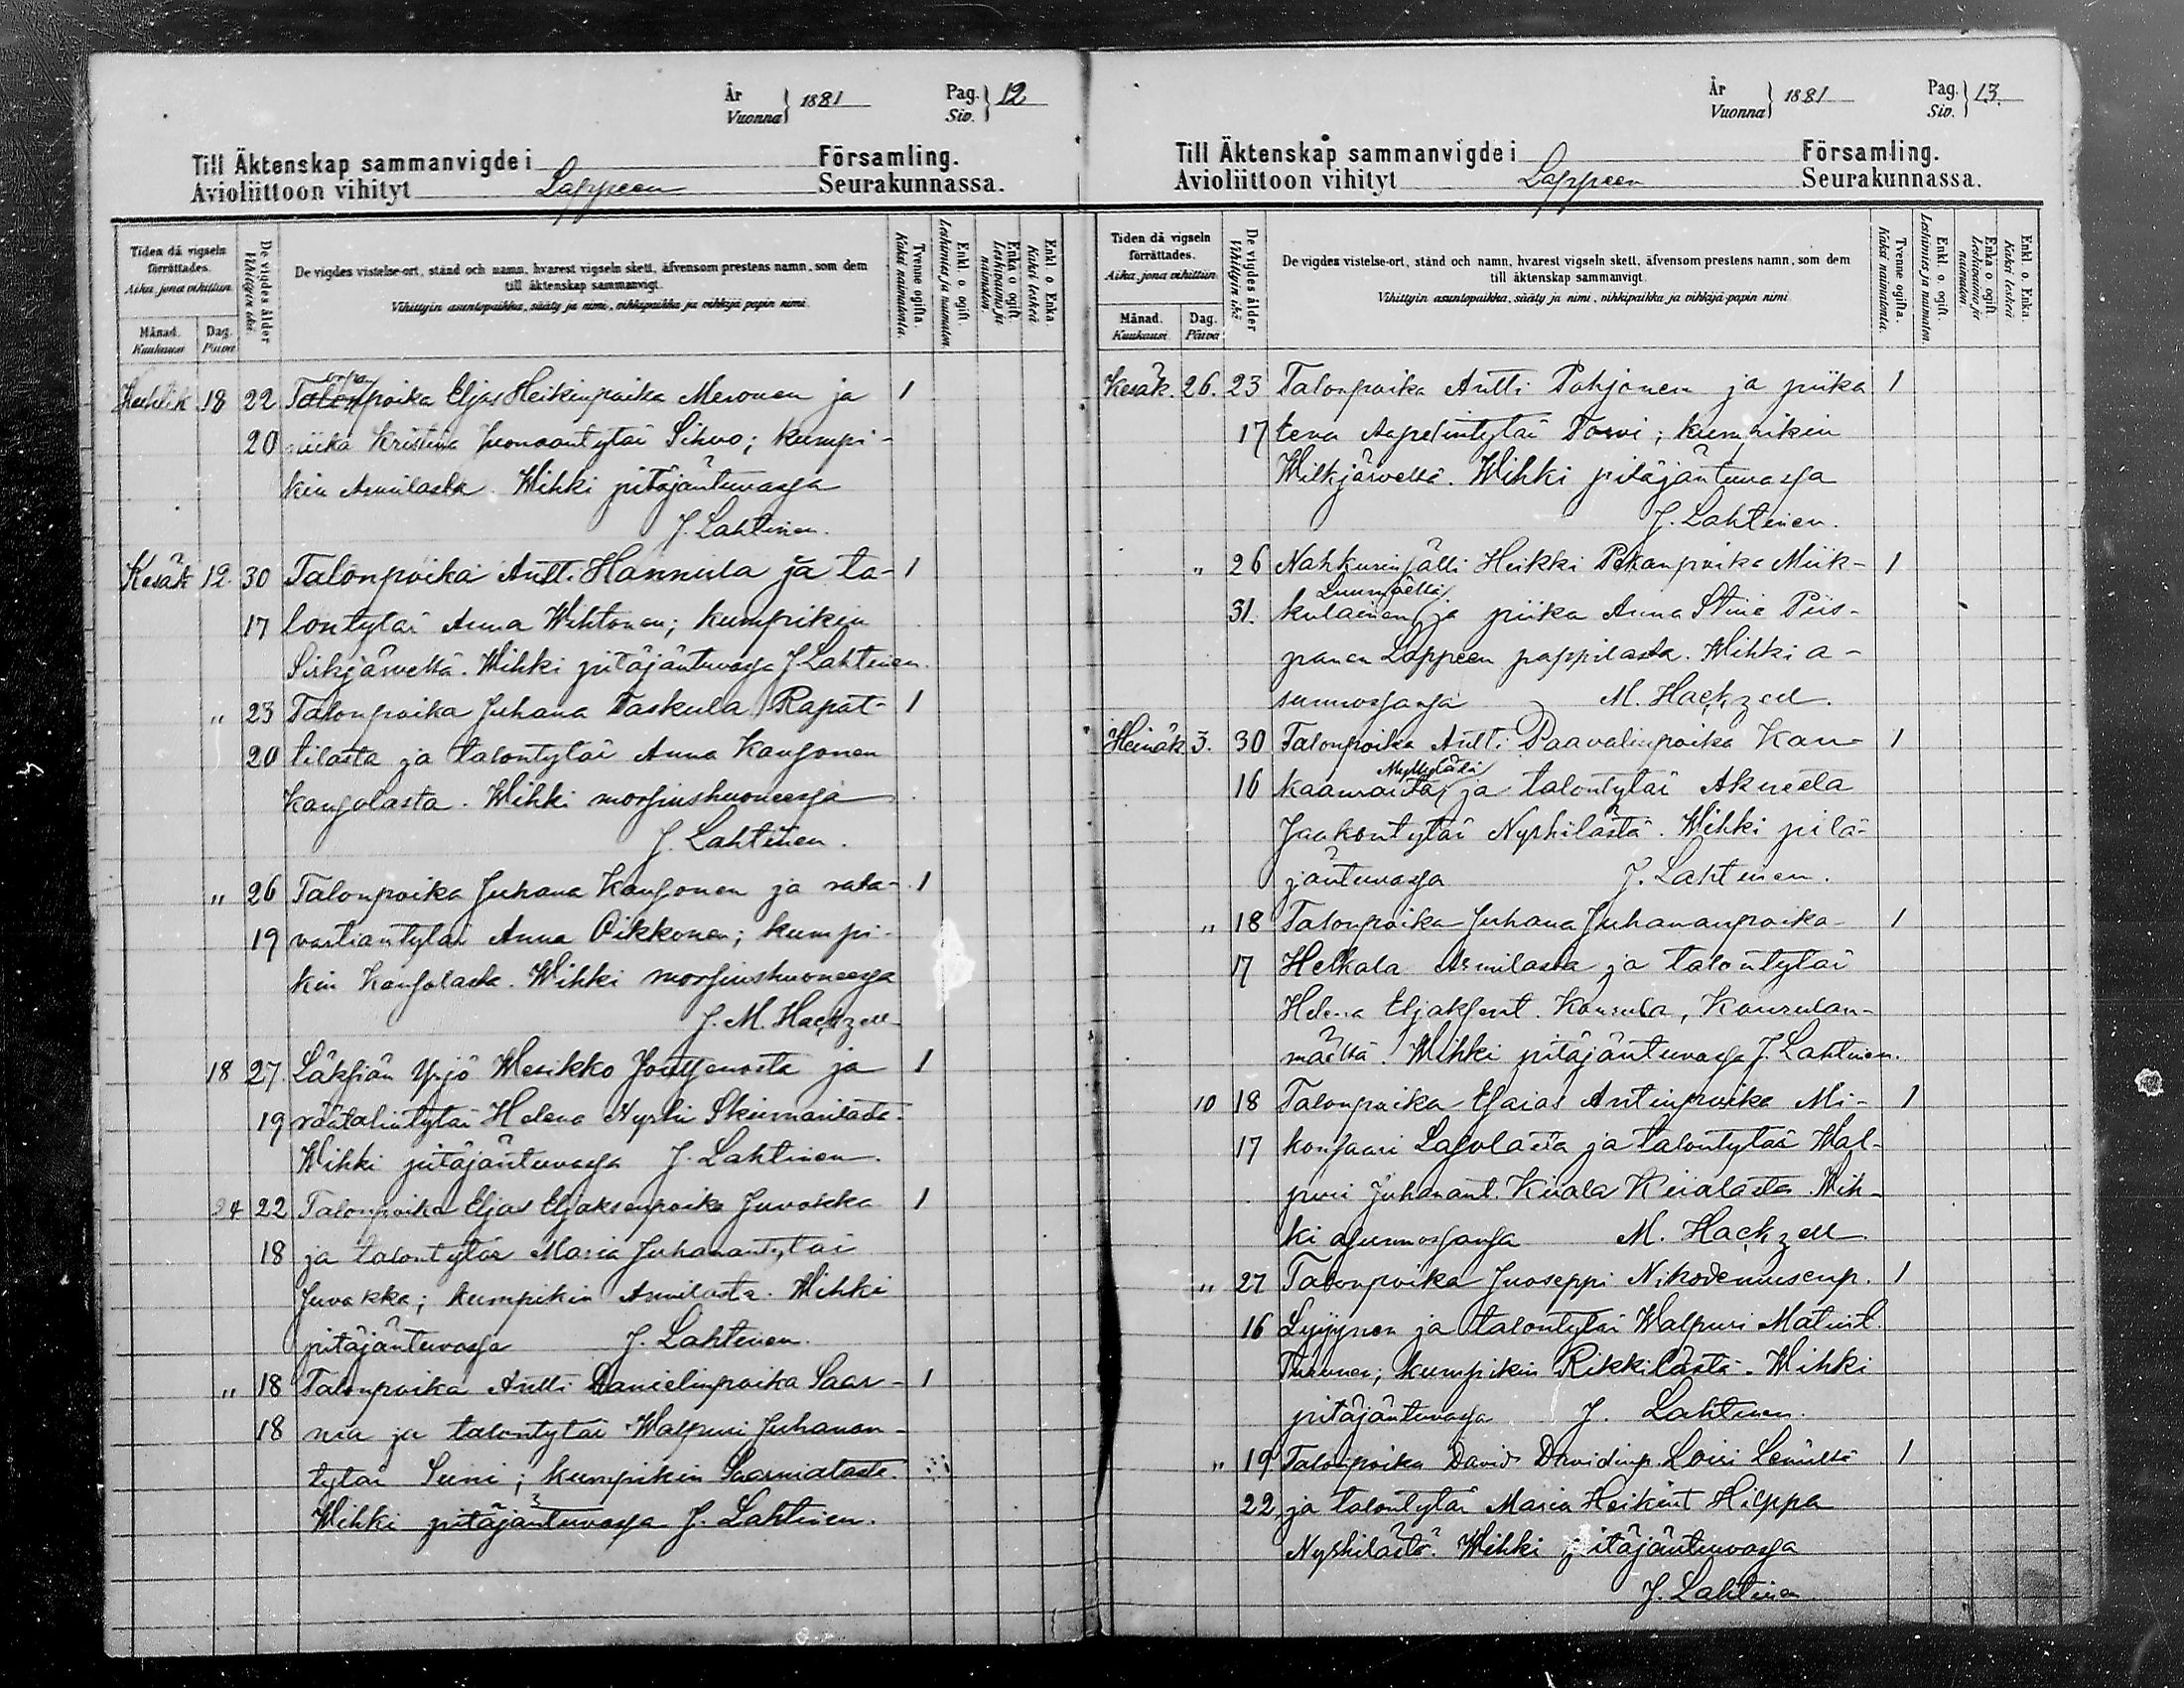 År
Vuonna } 1881 Pag.
Siv. } 12
Till Äktenskap sammanvigde i Församling.
Avioliittoon vihityt Lappeen Seurakunnassa.
Tiden då vigseln förrättades.
Aika, jona vihittiin.
Månad.
Kuukausi
Dag.
Päivä
De vigdes ålder
Vihittyin ikä
De vigdes vistelse-ort, stånd och namn, hvarest vigseln skett, äfvensom prestens namn, som dem
till äktenskap sammanvigt.
Vihittyin asuntopaikka, sääty ja nimi, vihkipaikka ja vihkijä-papin nimi.
Tvenne ogifta.
Kaksi naimatonta.
Enkl. o. ogift.
Leskimies ja naimaton.
Enka o. ogift.
Leskivaimo ja naimaton.
Enkl. o. Enka.
Kaksi leskeä
18 22 poika Eljas Heikinpoika Meronen ja 1
20 piika Kristina Sihvo; kumpi-
kin Armilasta. Wihki pitäjäntuvassa
J. Lahtinen.
Kesäk 12. 30 Talonpoika Antti Hannula ja ta- 1
17 lontytär Anna Wihtonen; kumpikin
Sirkjärveltä. Wihki pitäjäntuvassa J. Lahtinen.
" 23 Talonpoika Juhana Taskula Rapat- 1
20 tilasta ja talontytär Anna Kaussonen
Kaussolasta. Wihki morsiushuoneessa
J. Lahtinen.
" 26 Talonpoika Juhana Kaussonen ja rata- 1
19 vartiantytär Anna Oikkonen; kumpi-
kin Kaussolasta. Wihki morsiushuoneessa
J. M. Hackzell
18 27. Läksiän Yrjö Mesikko Joutsenosta ja 1
19 räätälintytär Helena Nyrhi Skinnarilasta.
Wihki pitäjäntuvassa J. Lahtinen.
24 22 Talonpoika Eljas Eljaksenpoika Juvakka 1
18 ja talontytär Maria Juhanantytär
Juvakka; kumpikin Armilasta. Wihki
pitäjäntuvassa J. Lahtinen.
" 18 Talonpoika Antti Danielinpoika Saar- 1
18 nia ja talontytär Walpuri Juhanan-
tytär Suni; kumpikin Saarnialasta.
Wihki pitäjäntuvassa J. Lahtinen.
År
Vuonna } 1881 Pag.
Siv. } 13.
Till Äktenskap sammanvigde i Församling.
Avioliittoon vihityt Lappeen Seurakunnassa.
Tiden då vigseln förrättades.
Aika, jona vihittiin
Månad.
Kuukausi
Dag.
Päivä
De vigdes ålder
Vihittyin ikä
De vigdes vistelse-ort, stånd och namn, hvarest vigseln skett, äfvensom prestens namn, som dem
till äktenskap sammanvigt.
Vihittyin asuntopaikka, sääty ja nimi, vihkipaikka ja vihkijä-papin nimi.
Tvenne ogifta.
Kaksi naimatonta.
Enkl. o. ogift.
Leskimies ja naimaton.
Enka o. ogift
Leskivaimo ja naimaton.
Enkl. o. Enka.
Kaksi leskeä
Kesäk. 26. 23 Talonpoika Antti Pohjonen ja piika 1
17 Aapelintytär Torvi; kumpikin
Wilkjärveltä. Wihki pitäjäntuvassa
J. Lahtinen.
" 26 Nahkurin Heikki Pekanpoika Miik- 1
Luumäeltä
31. kulainen ja piika Anna Stiina Piis-
panen Lappeen pappilasta. Wihki a-
sunnossansa M. Hackzell.
Heinäk 3. 30 Talonpoika Antti Paavalinpoika Kau- 1
16 ja talontytär Akneeta
Jaakontytär Nyrhilästä. Wihki pitä-
jäntuvassa J. Lahtinen.
" 18 Talonpoika Juhana Juhananpoika 1
17 Helkala Armilasta ja talontytär
Helena Eljaksent. Kourula, Kourulan-
mäeltä. Wihki pitäjäntuvassa J. Lahtinen.
10 18 Talonpoika Esaias Antinpoika Mi- 1
17 konsaari Lasolasta ja talontytär Wal-
puri Juhanant. Kiiala Kiialasta. Wih-
ki asunnossansa M. Hackzell
" 27 Talonpoika Juoseppi Nikodemusenp. 1
16 Lyijynen ja talontytär Walpuri Matint.
Turunen; kumpikin Rikkilästä. Wihki
pitäjäntuvassa J. Lahtinen.
" 19 Talonpoika David Davidinp. Loiri Lemiltä 1
22 ja talontytär Maria Heikint Hilppa
Nyrhilästä. Wihki pitäjäntuvassa
J. Lahtinen